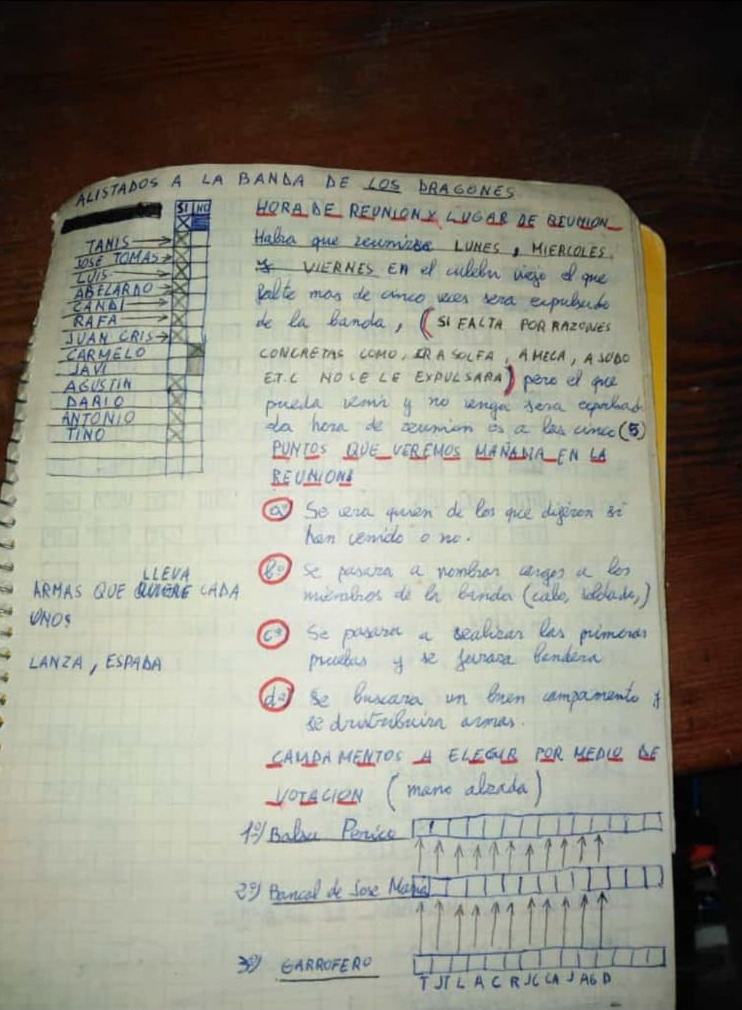 ALISTADOS A LA BANDA DE LOS DRAGONES
SI NO
TANIS
JOSE TOMAS
LUIS
ABELARDO
CANDI
RAFA
JUAN CRIS
CARMELO
JAVI
AGUSTIN
DARIO
ANTONIO
TINO
LLEVA
ARMAS QUE QUIERE CADA
UNO:
LANZA, ESPADA
HORA DE REUNION Y LUGAR DE REUNION
Habra que reunirse LUNES, MIERCOLES
y VIERNES EN el culebu viejo el que
falte mas de cinco veces sera expulsado
de la banda, (SI FALTA POR RAZONES
CONCRETAS COMO, IR A SOLFA, A MECA, A JUDO
E.T.C NO SE LE EXPULSARA) pero el que
pueda venir y no venga sera
La hora de reunion es a las cinco (5)
PUNTOS QUE VEREMOS MAÑANA EN LA
REUNION:
aº) Se vera quien de los que dijeron si
han venido o no.
bº) Se pasara a nombrar cargos a los
miembros de la banda (cabo, soldado,)
cº) Se pasara a realizar las primeras
pruebas y se jurara bandera
dº) Se buscara un buen campamento y
se distribuira armas.
CAMPAMENTOS A ELEGIR POR MEDIO DE
VOTACION (mano alzada)
1º) Balsa Perico
2º) Bancal de Jose Maria
3º) GARROFERO
T JT L A C R JC CA J AG D